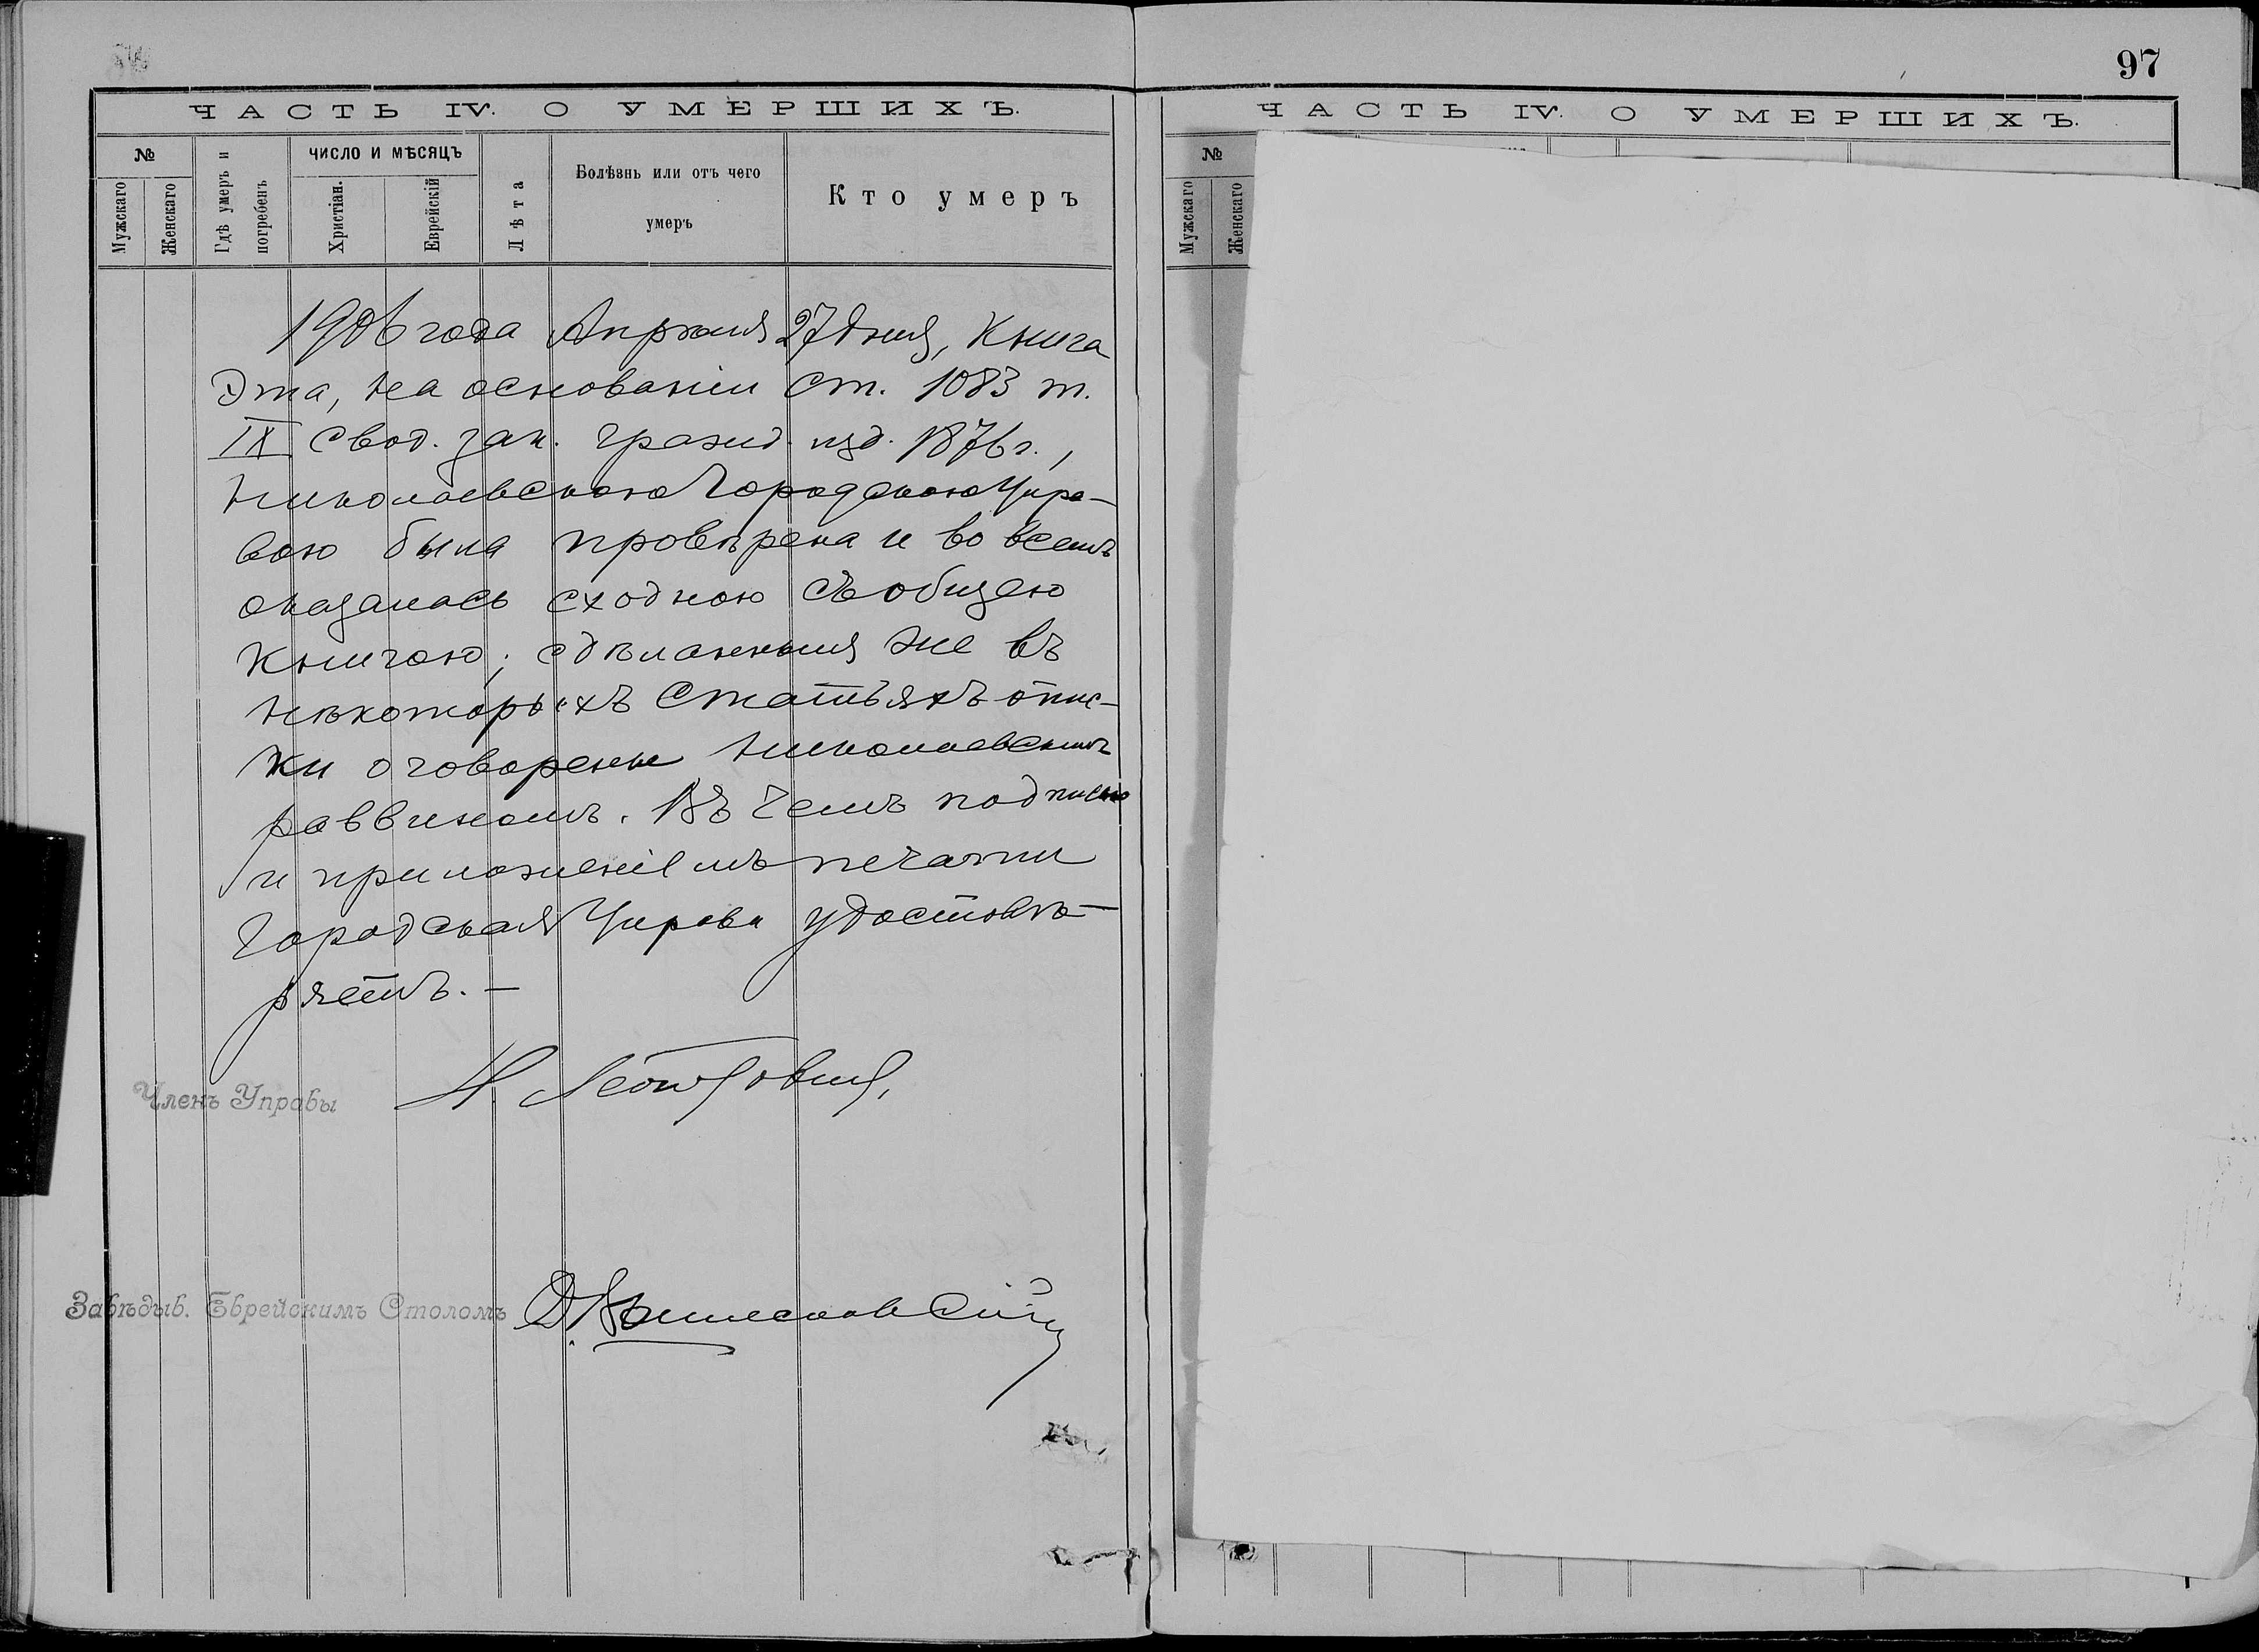 97
ЧАСТЬ IV. О УМЕРШИХЪ.
№
Мужскаго
Женскаго
Гдѣ умеръ и погребенъ
ЧИСЛО И МѢСЯЦЪ
Христіан.
Еврейскій
Лѣта
Болѣзнь или отъ чего умеръ
Кто умеръ
1906 года Апрѣля 27 дня, Книга
эта, на основаніи ст. 1083 т.
IX свод. зак. гражд. изд. 1876 г.,
Николаевскою Городскою Упра-
вою была провѣрена и во всемъ
оказалась сходною съ общею
книгою; сдѣланныя же въ
нѣкоторыхъ статьяхъ опис-
ки оговорены Николаевскимъ
раввиномъ. Въ чемъ подписью
и приложеніемъ печати
Городская Управа удостовѣ-
ряетъ. –
Членъ Управы Н. Леонтовичъ
Завѣдыв. Еврейскимъ Столомъ
ЧАСТЬ IV. О УМЕРШИХЪ.
№
Мужскаго
Женскаго